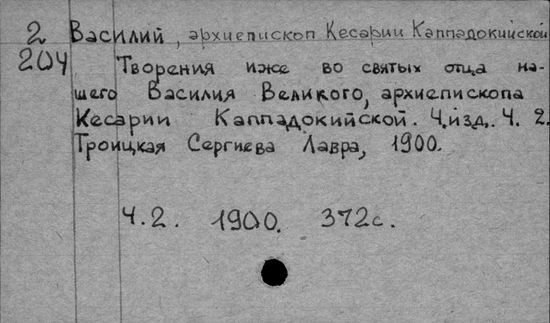 2 Василий, архиепископ Кесарии Каппадокийской
204 Творения иже во святых отца на-
шего Василия Великого, архиепископа
Кесарии Каппадокийской. 4.изд. Ч. 2.
Троицкая Сергиева Лавра, 1900.
Ч.2. 1900. 372с.